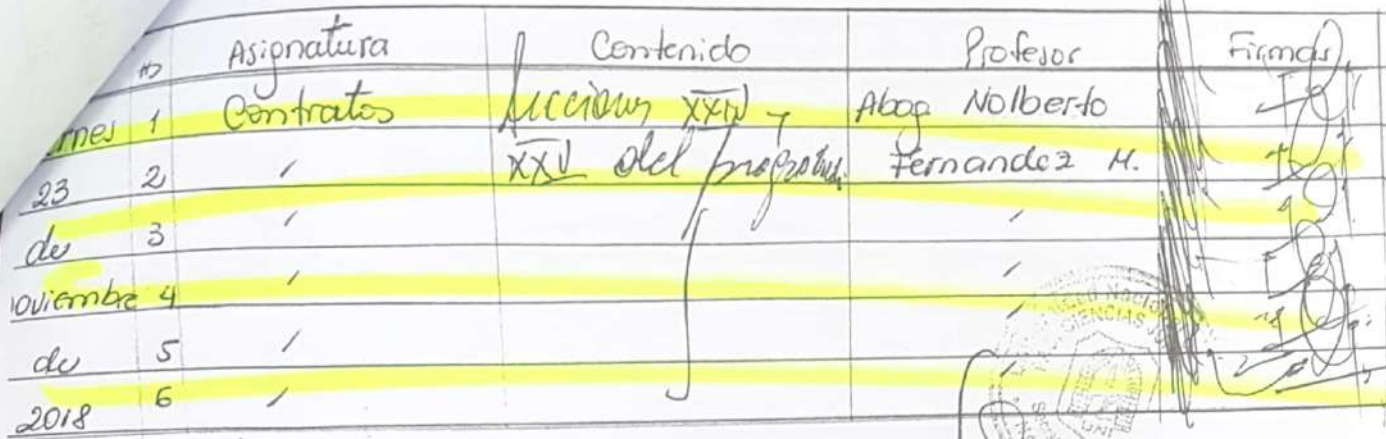 Asignatura Contenido Profesor Firmas
rnes 1 Contratos Lecciones XXIV y Abog. Nolberto
23 2 " XXV del programa. Fernandez M.
de 3 " "
oviembre 4 " "
de 5 " "
2018 6 " "
CIENCIAS